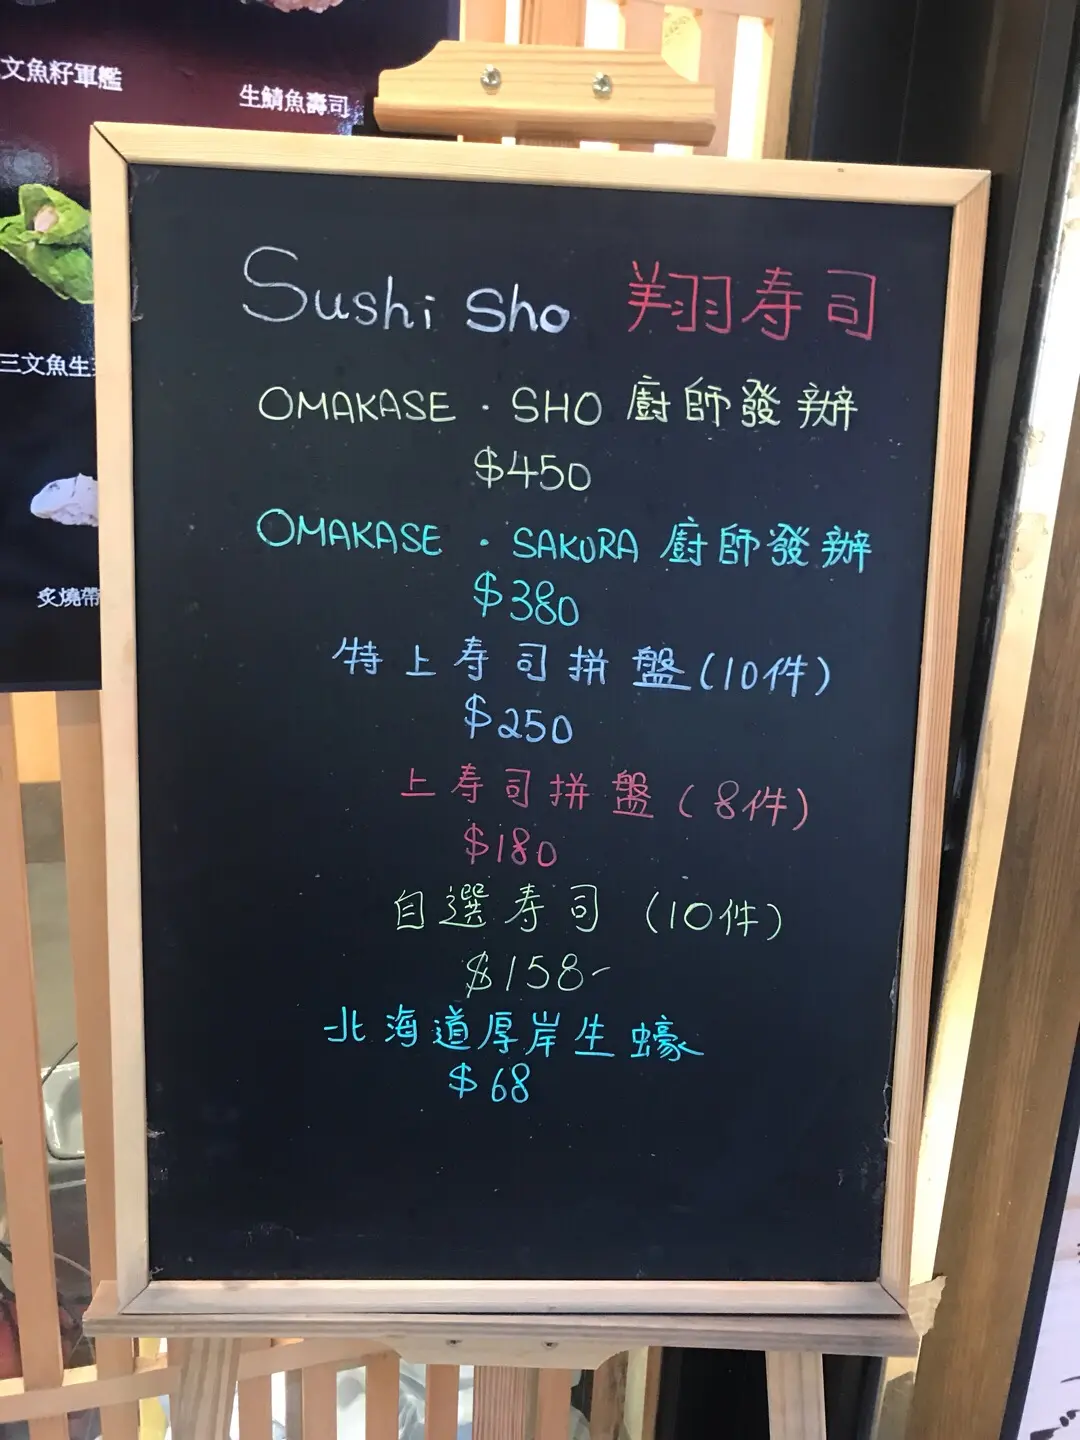 文魚籽軍艦
生鯖魚壽司
三文魚生
炙燒帶
Sushi Sho 翔寿司
OMAKASE · SHO 廚師發辦
$450
OMAKASE · SAKURA 廚師發辦
$380
特上寿司拼盤(10件)
$250
上寿司拼盤(8件)
$180
自選寿司 (10件)
$158-
北海道厚岸生蠔
$68